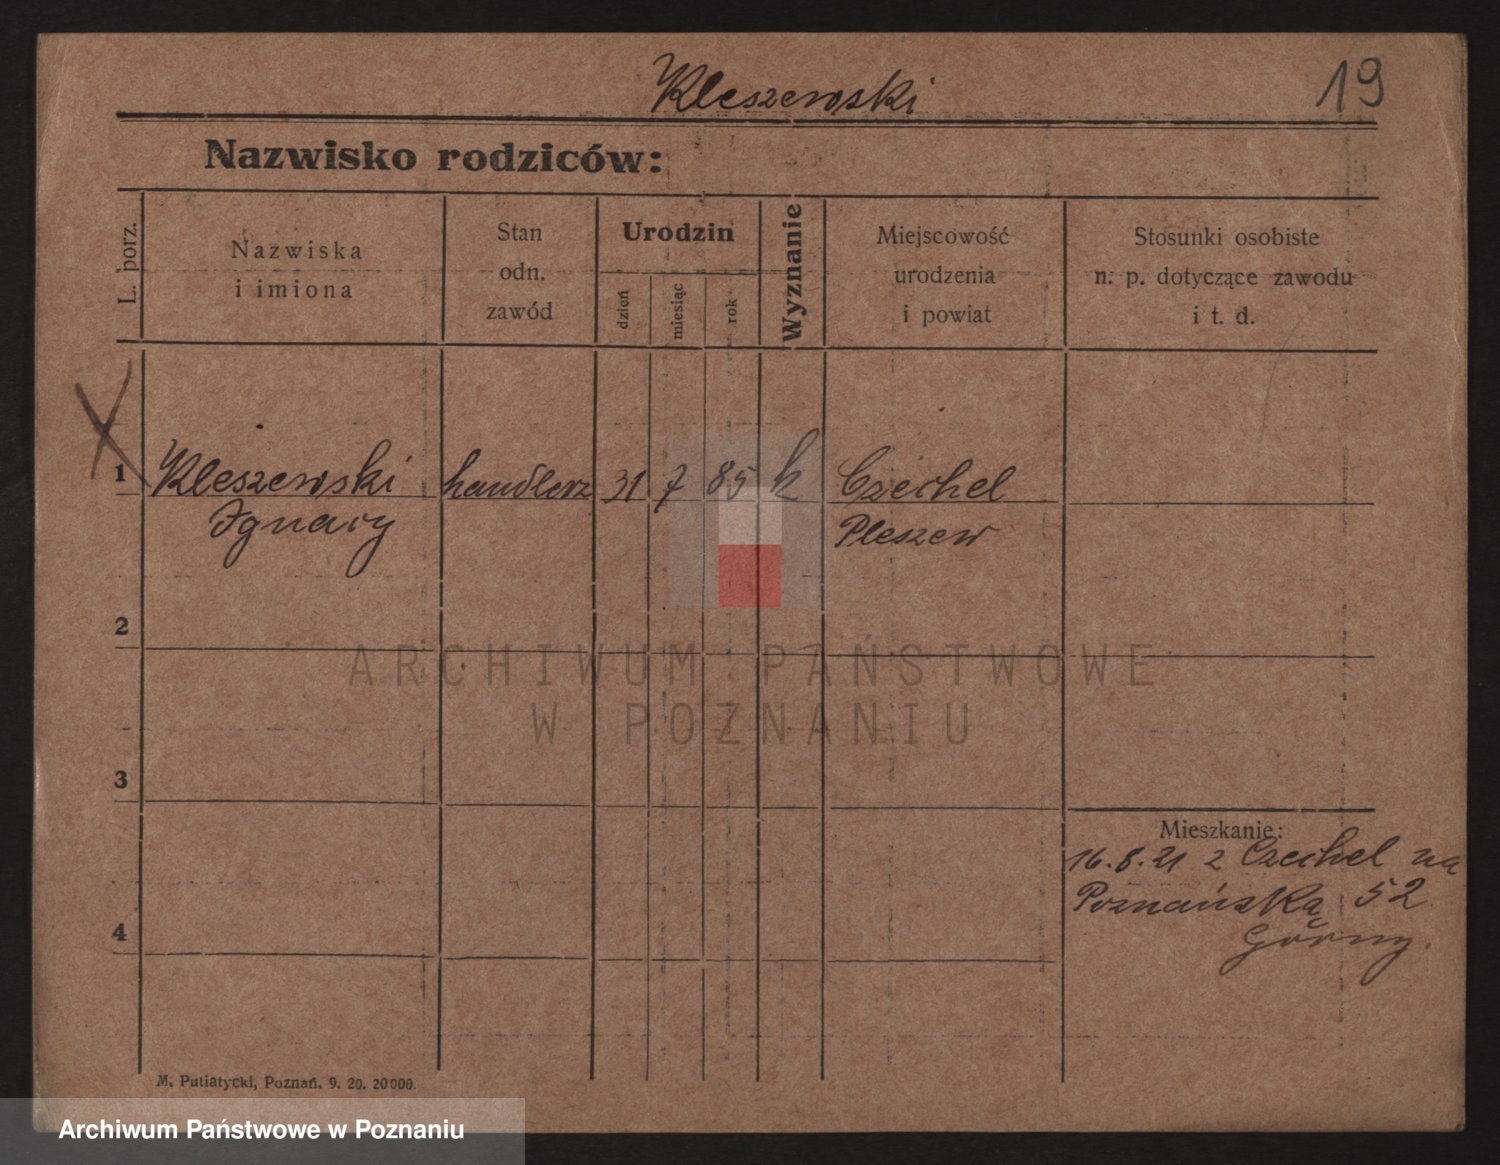 Kleszewski
19
Nazwisko rodziców:
L. porz.
Nazwiska
i imiona
Stan
odn.
zawód
Urodzin
dzień
miesiąc
rok
Wyznanie
Miejscowość
urodzenia
i powiat
Stosunki osobiste
n. p. dotyczące zawodu
i t. d.
1 Kleszewski handlerz 31 7 85 k Czechel
Ignacy Pleszew
2
ARCHIWUM PAŃSTWOWE
W POZNANIU
3
Mieszkanie:
16.8.21 z Czechel na
Poznańska 52
Górny.
4
M. Putiatycki, Poznań. 9. 20. 20000.
Archiwum Państwowe w Poznaniu